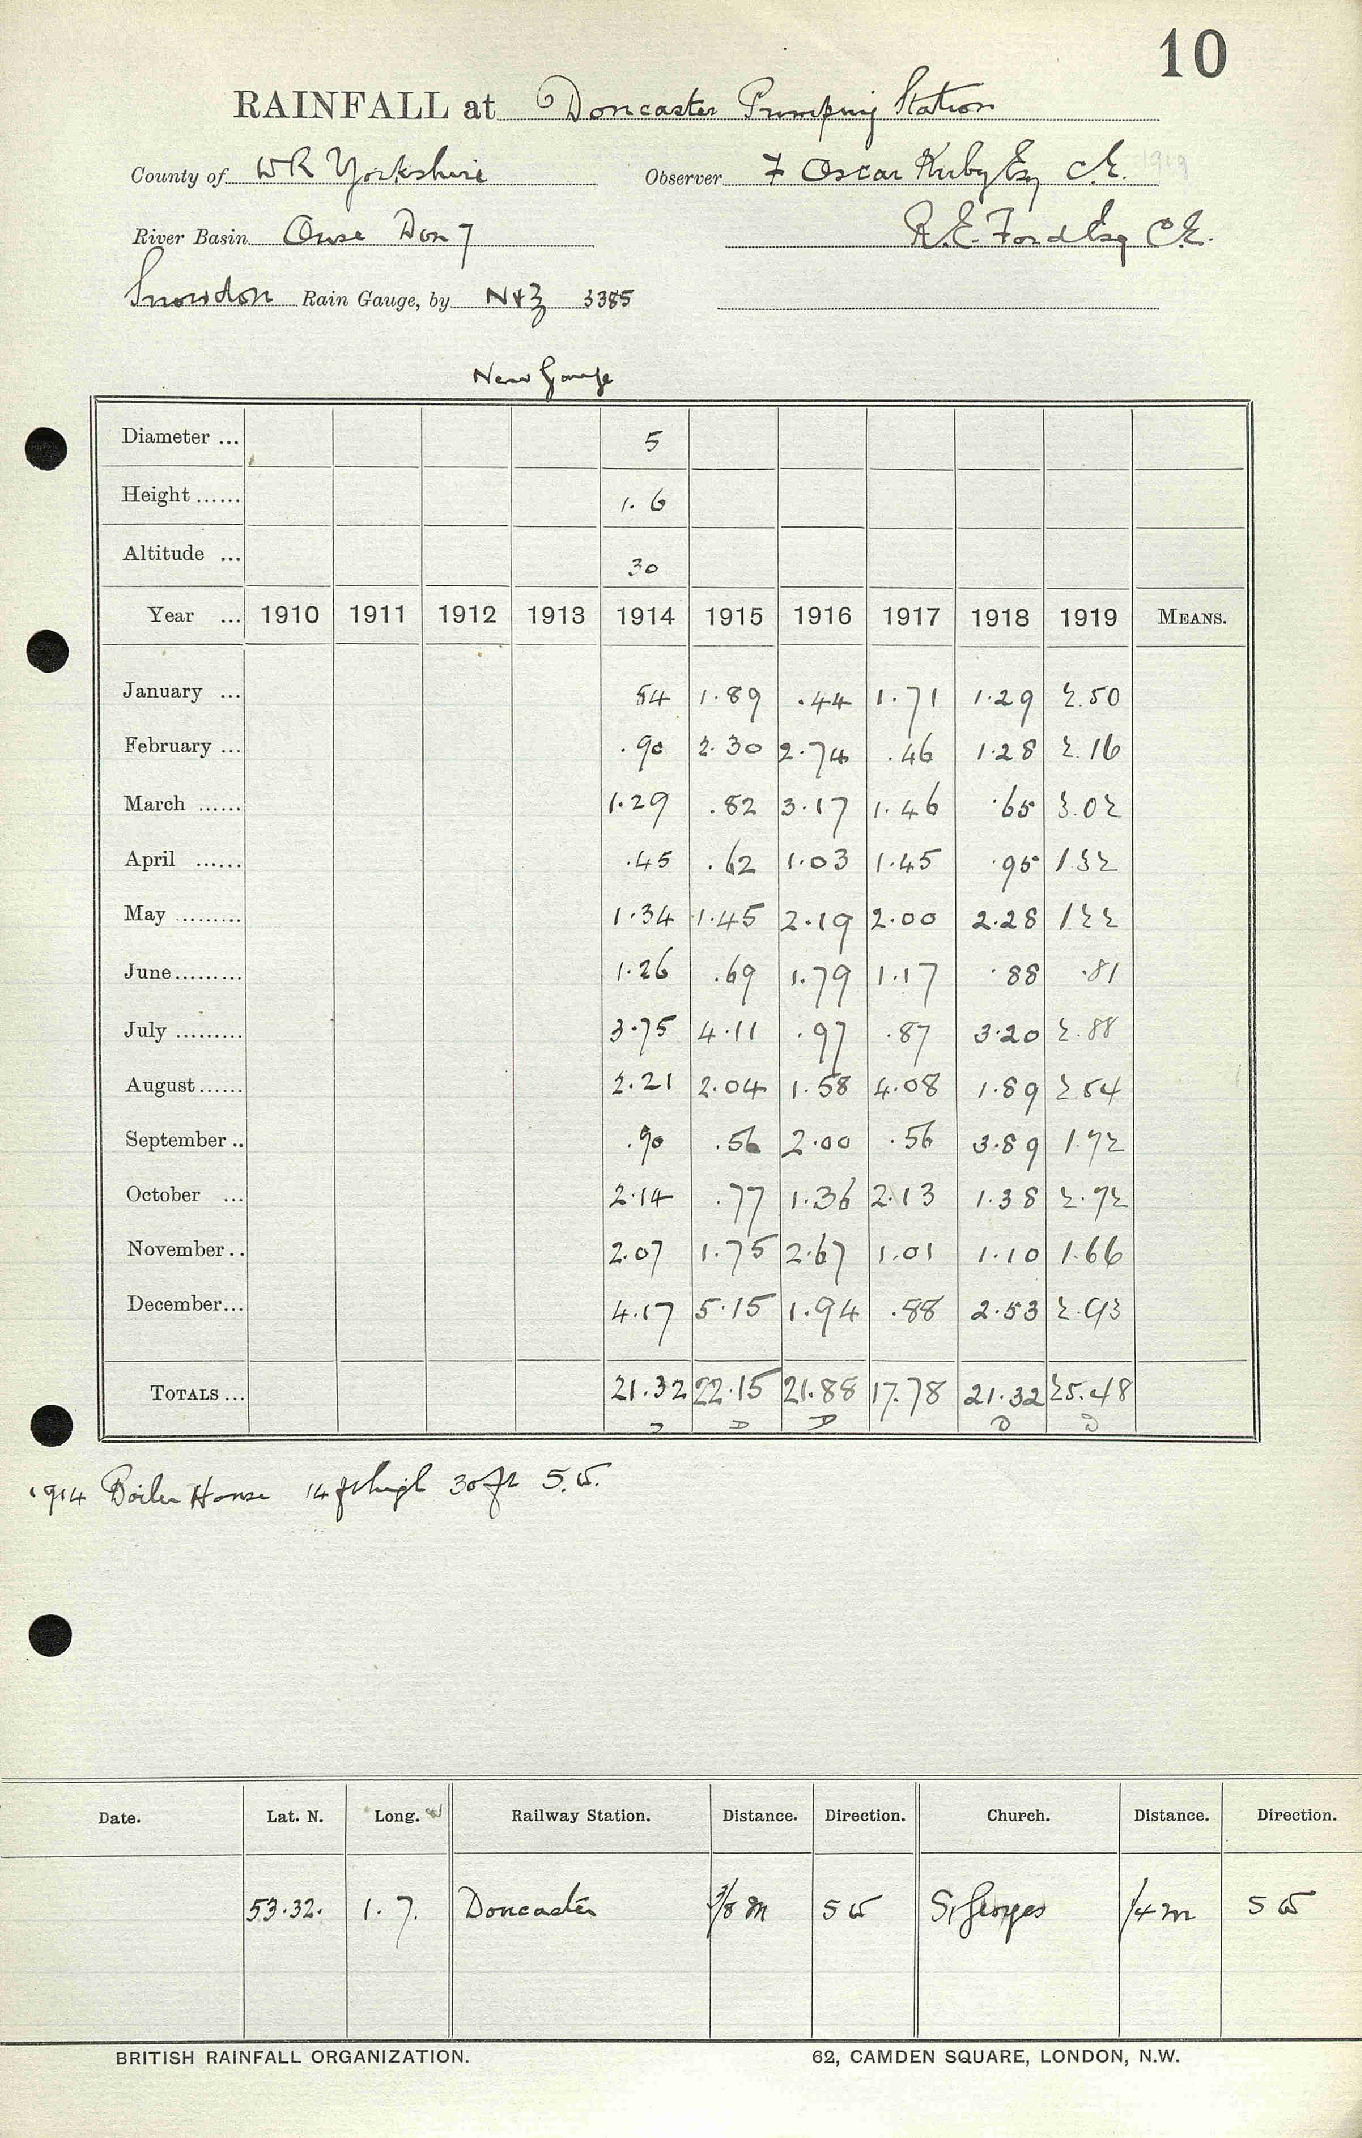 10
RAINFALL at Doncaster Pumping Station
County of WR Yorkshire Observer F Oscar Kirby Esq C.E. 1919
River Basin Ouse Don 7 R.E. Ford Esq C.E.
Snowdon Rain Gauge, by N&Z 3385
New Gauge
Diameter ... 5
Height ...... 1. 6
Altitude ... 30
Year ... 1910 1911 1912 1913 1914 1915 1916 1917 1918 1919 MEANS.
January ... 54 1.89 .44 1.71 1.29 2.50
February ... .90 2.30 2.74 .46 1.28 2.16
March ...... 1.29 .82 3.17 1.46 .65 3.02
April ...... .45 .62 1.03 1.45 .95 1.32
May ......... 1.34 1.45 2.19 2.00 2.28 1 22
June......... 1.26 .69 1.79 1.17 .88 .81
July ......... 3.75 4.11 .97 .87 3.20 2.88
August...... 2.21 2.04 1.58 4.08 1.89 2.54
September .. .90 .56 2.00 .56 3.89 1.72
October ... 2.14 .77 1.36 2.13 1.38 2.72
November .. 2.07 1.75 2.67 1.01 1.10 1.66
December... 4.17 5.15 1.94 .88 2.53 2.93
TOTALS ... 21.32 22.15 21.88 17.78 21.32 25.48
D D D D D
1914 Boiler House 14 ft high 30 ft S.W.
Date. Lat. N. Long. W Railway Station. Distance. Direction. Church. Distance. Direction.
53.32. 1. 7. Doncaster 3/8 m SW St Georges 1/4 m SW
BRITISH RAINFALL ORGANIZATION. 62, CAMDEN SQUARE, LONDON, N.W.